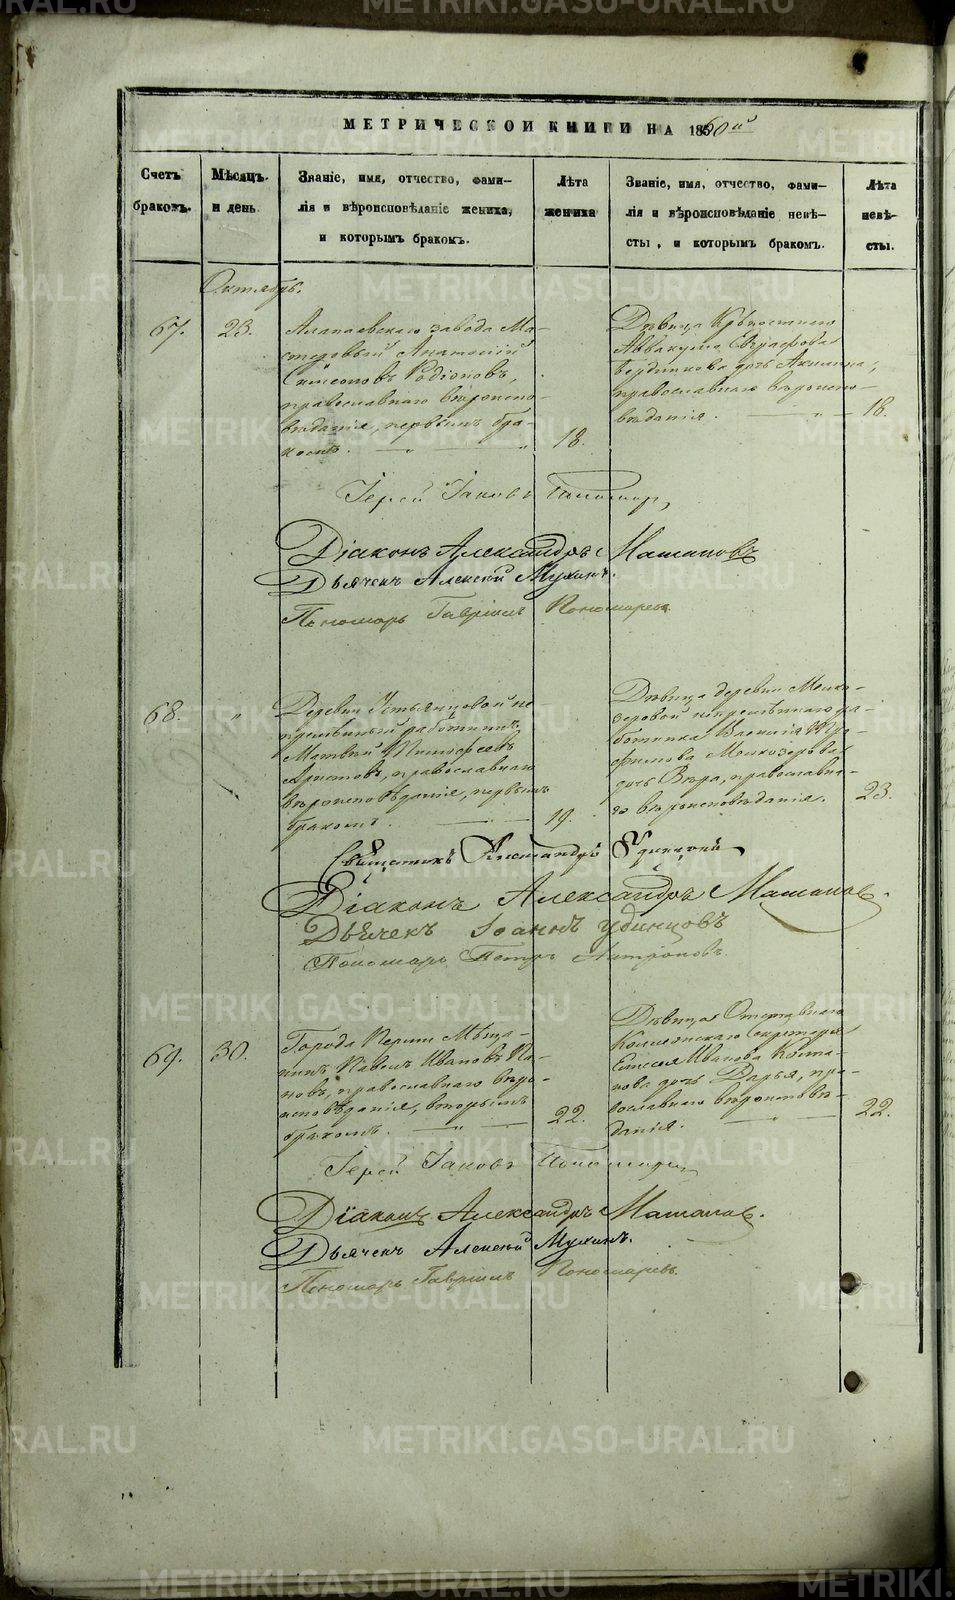 МЕТРИЧЕСКОЙ КНИГИ НА 1860й
Счетъ браковъ.
Мѣсяцъ и день
Званіе, имя, отчество, фами-
лія и вѣроисповѣданіе жениха,
и которымъ бракомъ.
Лѣта
жениха
Званіе, имя, отчество, фами-
лія и вѣроисповѣданіе невѣ-
сты, и которымъ бракомъ.
Лѣта
невѣ-
сты.
Октябрь.
67.
23.
Алапаевскаго завода Ма-
стеровый Анатолій
Симеоновъ Родіоновъ,
православнаго вѣроиспо-
вѣданія, первымъ бра-
комъ.
18.
Дѣвица Крѣпостнаго
Аввакума Евграфова
дочь Акилина,
православнаго вѣроиспо-
вѣданія.
18.
Іерей Іаковъ
Діаконъ Александръ Машановъ
Дьячекъ Алексій Мухинъ.
Пономарь Гавріилъ Пономаревъ
68.
"
Деревни Устьянцовой не
премѣнный работникъ
Матвей
Аристовъ, православнаго
вѣроисповѣданія, первымъ
бракомъ.
19.
Дѣвица деревни Мелко-
зеровой непремѣннаго ра-
ботника Василія Тро-
фимова Мелкозерова
дочь Вѣра, православна-
го вѣроисповѣданія.
23.
Священникъ Александръ Удинцовъ
Діаконъ Александръ Машановъ.
Дьячекъ Іоаннъ Удинцовъ
Пономарь Петръ Антроповъ.
69.
30.
Города Перми Мѣща-
нинъ Павелъ Ивановъ По-
повъ, православнаго вѣро-
исповѣданія, вторымъ
бракомъ.
22.
Дѣвица Отставнаго
Коллежскаго Секретаря
Елисея Иванова
дочь Дарья, пра-
вославнаго вѣроисповѣ-
данія.
22.
Іерей Іаковъ
Діаконъ Александръ Машановъ.
Дьячекъ Алексій Мухинъ.
Пономарь Гавріилъ Пономаревъ.
METRIKI.GASO-URAL.RU